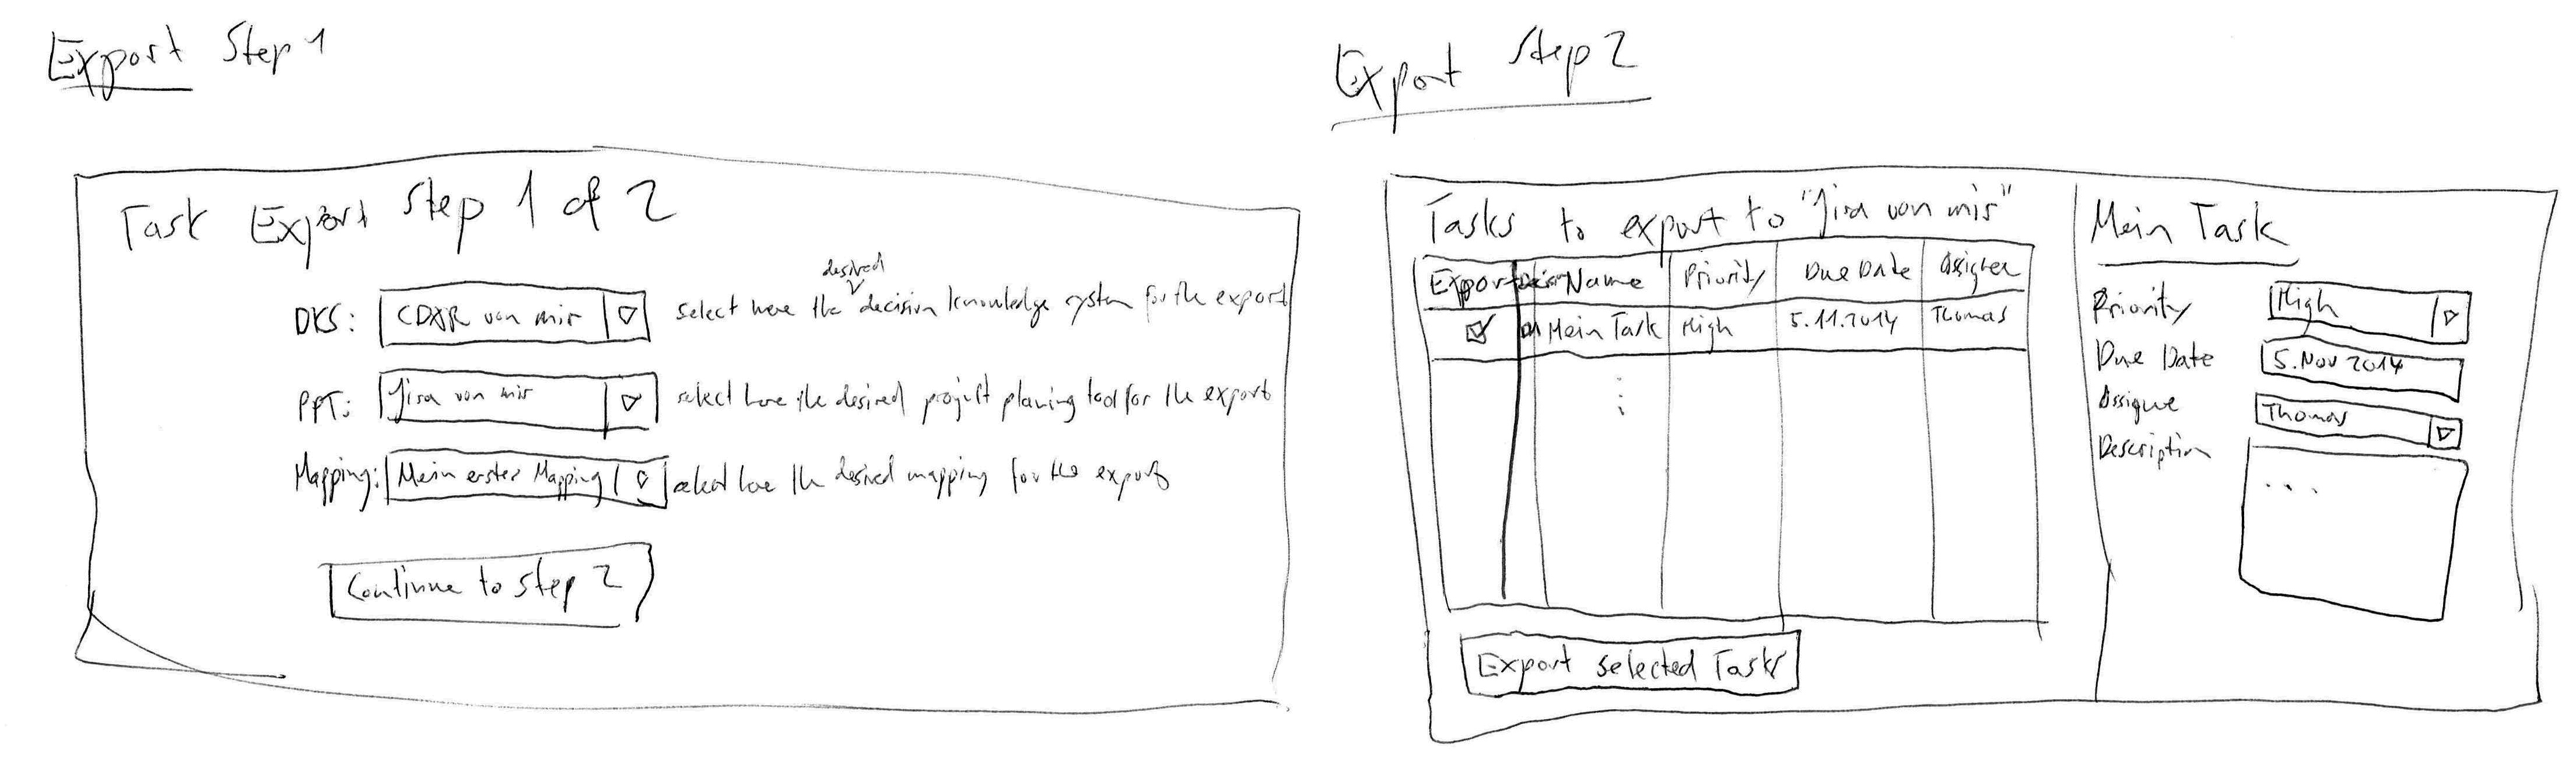 Export Step 1
Task Export Step 1 of 2
DKS: CDAR von mir select here the desired decision knowledge system for the export
PPT: Jira von mir select here the desired projekt planing tool for the export
Mapping: Mein erster Mapping select here the desired mapping for the export
Continue to Step 2
Export Step 2
Tasks to export to "Jira von mir"
Export Name Priority Due Date Assignee
Mein Task High 5.11.2014 Thomas
Export selected Tasks
Mein Task
Priority High
Due Date 5. Nov 2014
Assigne Thomas
Description ...